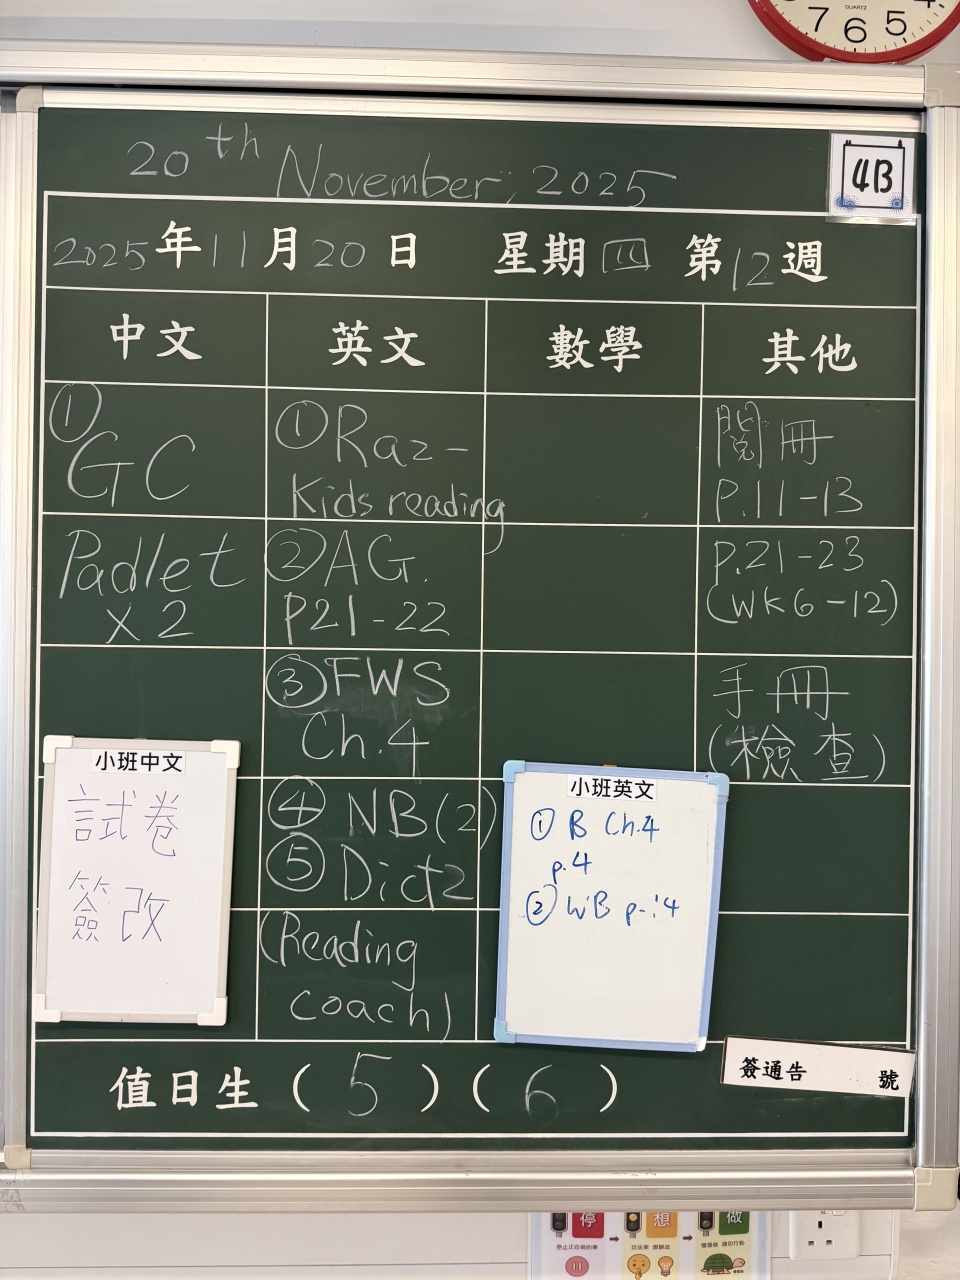 QUARTZ
7 6 5
20th November, 2025
4B
2025年11月20日 星期四 第12週
中文 英文 數學 其他
①
GC
Padlet
x2
①Raz-
Kids reading
②AG.
P21-22
③FWS
Ch.4
④ NB(2)
⑤ Dict2
(Reading
coach)
閱冊
P.11-13
P.21-23
(WK6-12)
手冊
(檢查)
小班中文
試卷
簽改
小班英文
① B Ch.4
p.4
② WB p.14
簽通告 號
值日生 (5) (6)
停 想 做